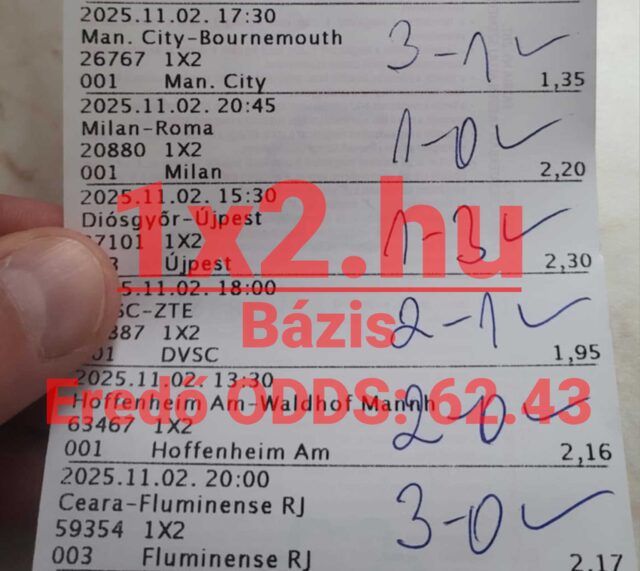 2025.11.02. 17:30
Man. City-Bournemouth
26767 1X2
001 Man. City 1,35
3-1 ✓
2025.11.02. 20:45
Milan-Roma
20880 1X2
001 Milan 2,20
1-0 ✓
2025.11.02. 15:30
Diósgyőr-Újpest
7101 1X2
3 Újpest 2,30
1-3 ✓
1x2.hu
5.11.02. 18:00
SC-ZTE
387 1X2
01 DVSC 1,95
2-1 ✓
Bázis
2025.11.02. 13:30
Hoffenheim Am-Waldhof Mannh
63467 1X2
001 Hoffenheim Am 2,16
2-0 ✓
Eredő ODDS: 62.43
2025.11.02. 20:00
Ceara-Fluminense RJ
59354 1X2
003 Fluminense RJ 2,17
3-0 ✓